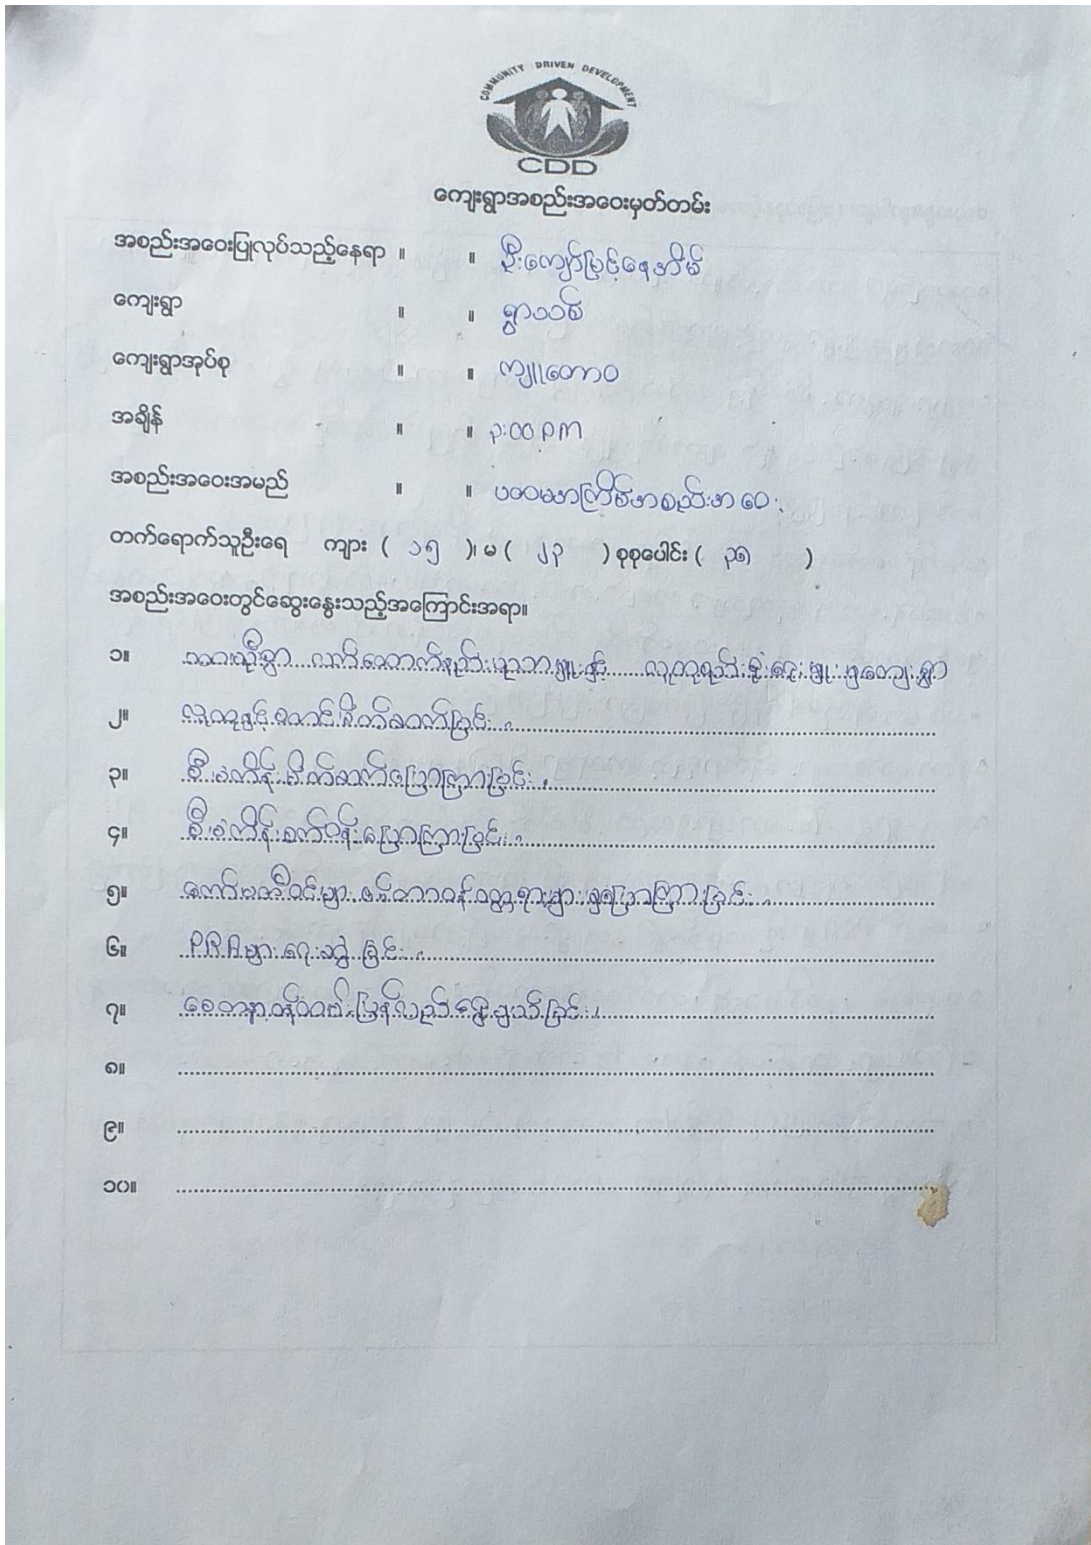 COMMUNITY DRIVEN DEVELOPMENT
CDD
ကျေးရွာအစည်းအဝေးမှတ်တမ်း
အစည်းအဝေးပြုလုပ်သည့်နေရာ ။ ။ ဦးကျော်မြင့်နေအိမ်
ကျေးရွာ ။ ။ ရွာသစ်
ကျေးရွာအုပ်စု ။ ။ ကျူတောဝ
အချိန် ။ ။ ၃:၀၀ pm
အစည်းအဝေးအမည် ။ ။ ပထမအကြိမ်အစည်းအဝေး
တက်ရောက်သူဦးရေ ကျား ( ၁၅ )၊ မ ( ၂၃ ) စုစုပေါင်း ( )
အစည်းအဝေးတွင်ဆွေးနွေးသည့်အကြောင်းအရာ။
၁။ ကျေးရွာ
၂။ လူထုနှင့် မိတ်ဆက်ခြင်း
၃။ စီမံကိန်းမိတ်ဆက်ပြောကြားခြင်း
၄။ စီမံကိန်း ပြောကြားခြင်း
၅။ ကော်မတီဝင်များ တာဝန်ဝတ္တရားများ ပြောကြားခြင်း
၆။ P.R.A များရေးဆွဲခြင်း
၇။ စေတနာ့ဝန်ထမ်းပြန်လည်ရွေးချယ်ခြင်း
၈။
၉။
၁၀။